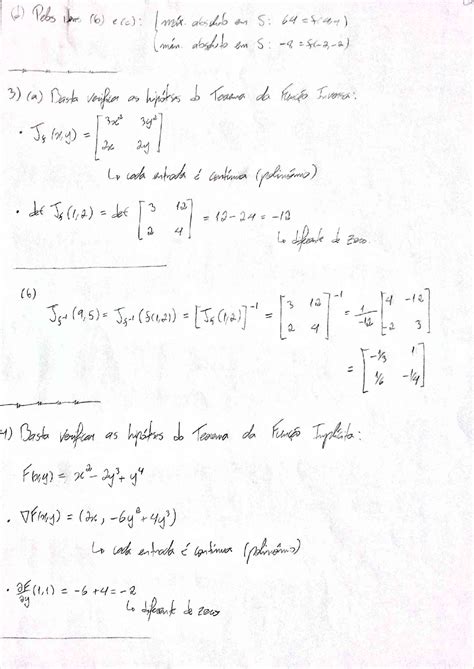 (d) Pelos itens (b) e (c): { máx. absoluto em S: 64 = f(4,4)
mín. absoluto em S: -8 = f(-2,-2)
3) (a) Basta verificar as hipóteses do Teorema da Função Inversa:
• J_f(x,y) = [3x² 3y²
2x 2y]
↳ cada entrada é contínua (polinômio)
• det J_f(1,2) = det [3 12
2 4] = 12-24 = -12
↳ diferente de zero.
(b)
J_f⁻¹(9,5) = J_f⁻¹(f(1,2)) = [J_f(1,2)]⁻¹ = [3 12
2 4]⁻¹ = 1/-12 [4 -12
-2 3]
= [-1/3 1
1/6 -1/4]
4) Basta verificar as hipóteses do Teorema da Função Implícita:
F(x,y) = x² - 2y³ + y⁴
• ∇F(x,y) = (2x, -6y² + 4y³)
↳ cada entrada é contínua (polinômio)
• ∂F/∂y (1,1) = -6+4 = -2
↳ diferente de zero